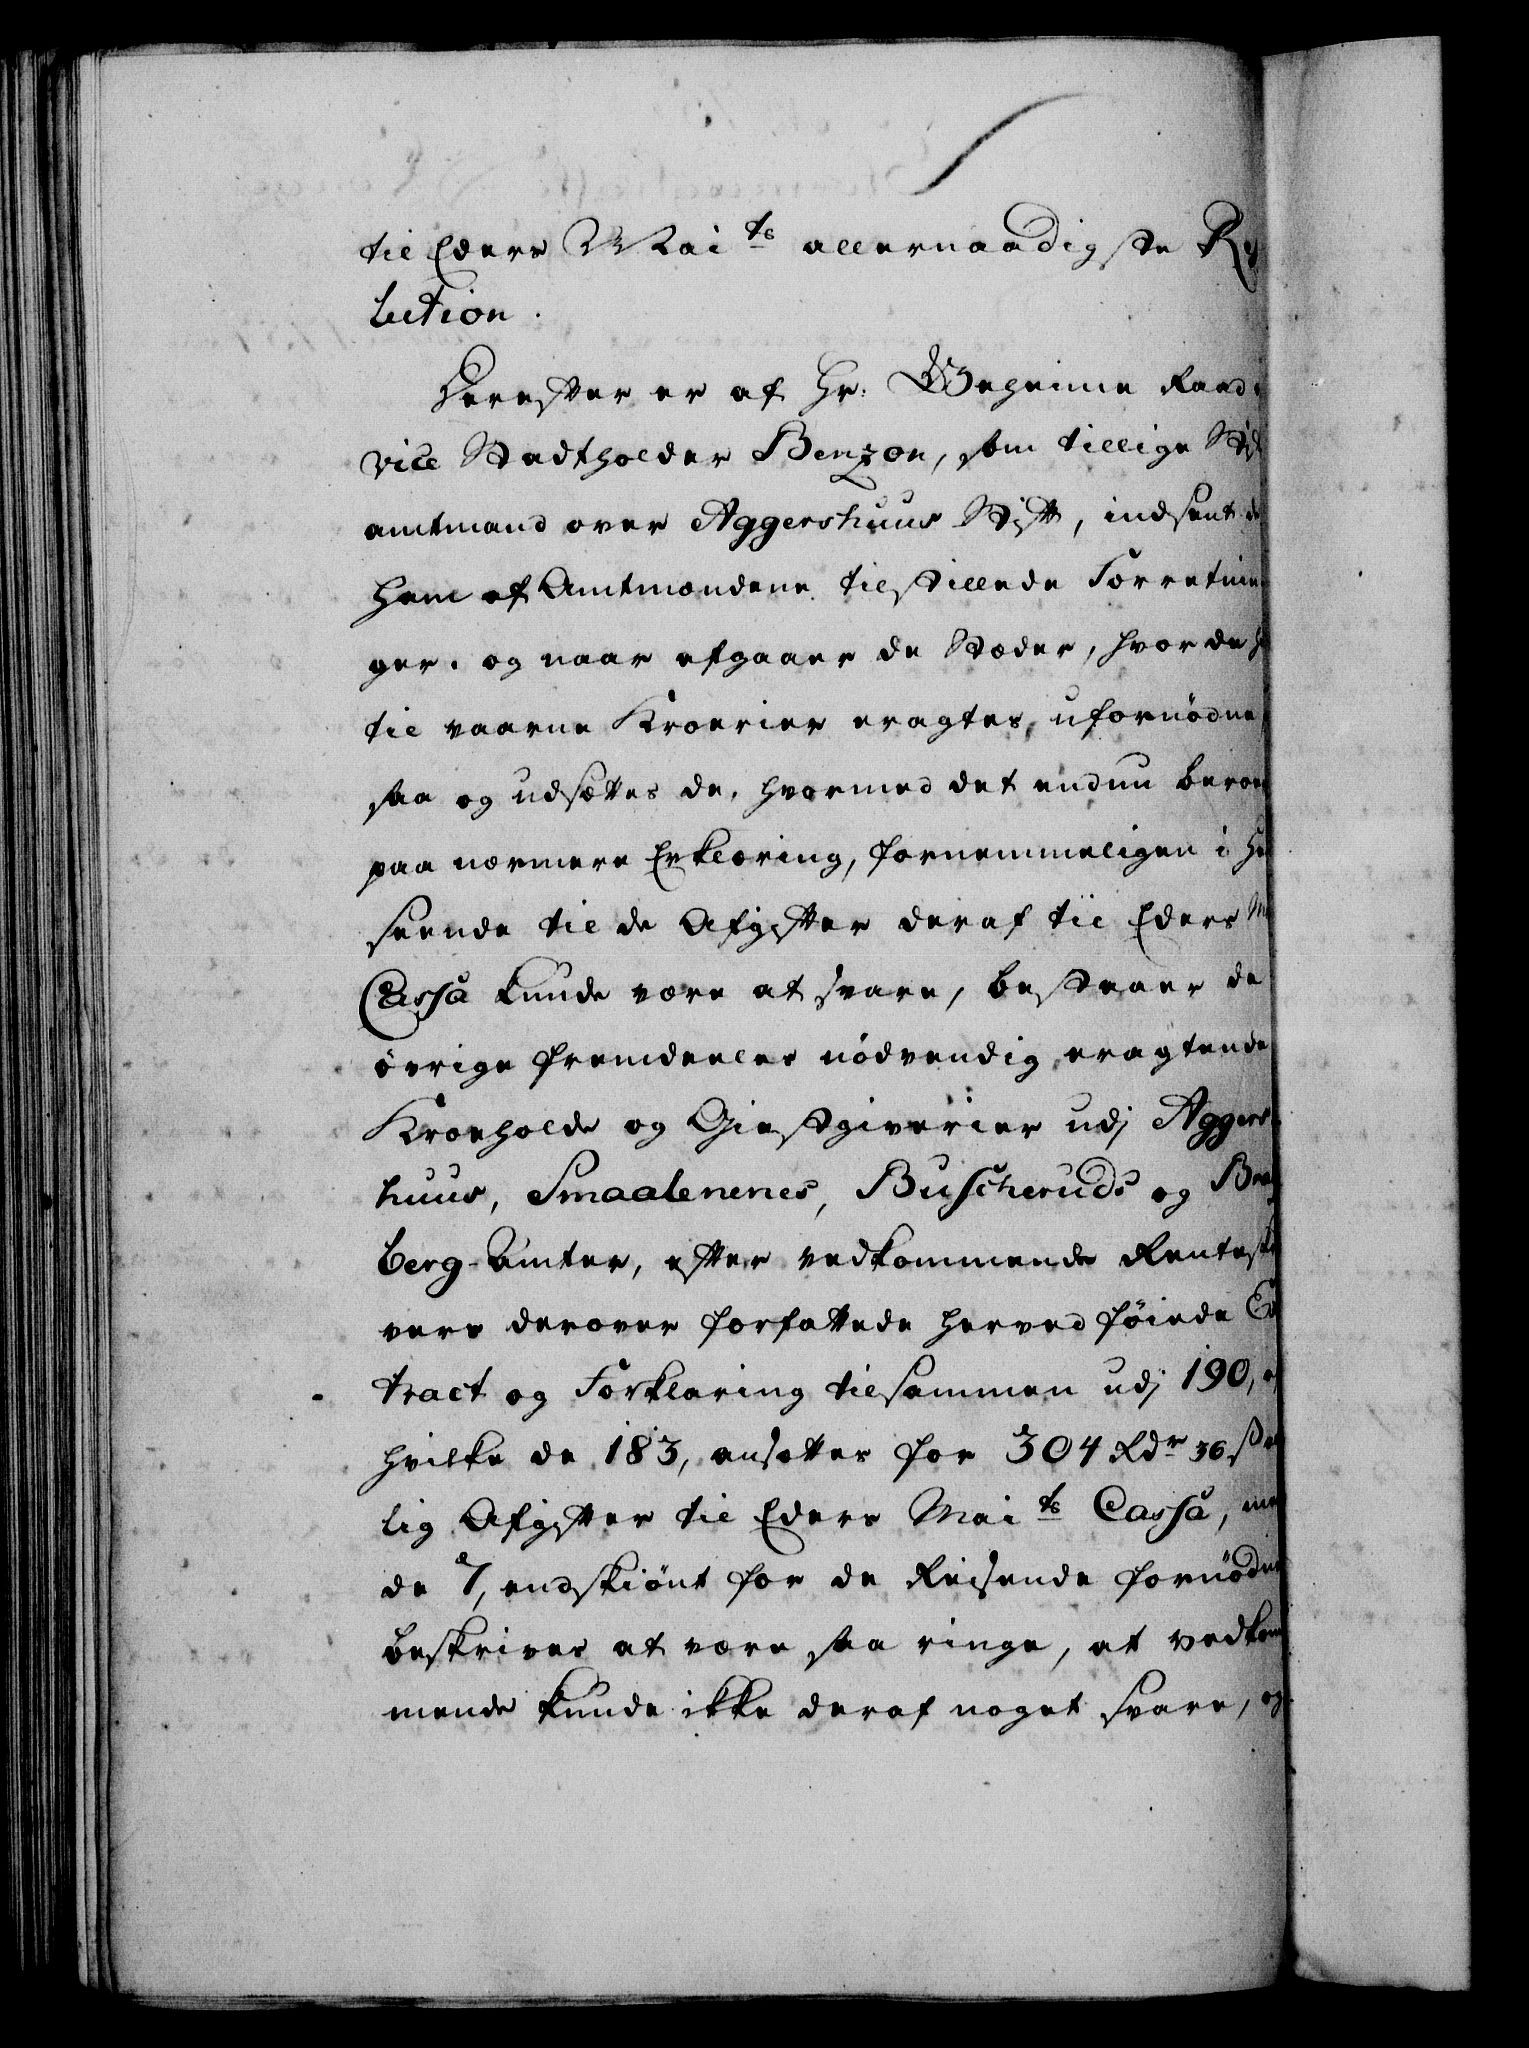 til Eders Mai ts allernaadigste Re
lution.
Herefter er af Hr: Geheime Raad
vice Stadtholder Benzon, som tillige Stift
amtmand over Aggershuus Stift, indsent de
ham af Amtmændene tilstillede Forretnin
ger. og naar afgaaer de Stæder, hvor de
til vaarne Kroerier eragtes, ufornødne,
saa og udsættes de, hvormed det endnu beroer
paa nærmere Erklæring, fornemmeligen i Hen
seende til de Afgifter deraf til Eders M
Cassa kunde være at svare, bestaaer de
øvrige fremdeeles nødvendig eragtende
Kroeholde og Giestgiverier udj Aggers
huus, Smaalenenes, Buscheruds og Brats
berg Amter, efter vedkommende Renteskri
vers derover forfattede herved föiede Ex
tract og Forklaring tilsammen udj 190, af
hvilke de 183, ansættes for 304 Rdr 36 s
lig Afgifter til Eders Mai ts Cassa, men
de 7, endskiönt for de Reisende fornødne
beskrives at være saa ringe, at vedkom
mende kunde ikke deraf noget svare, og